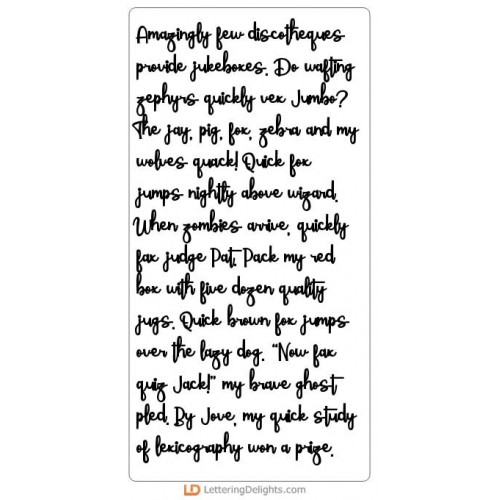 Amazingly few discotheques
provide jukeboxes. Do wafting
zephyrs quickly vex Jumbo?
The jay, pig, fox, zebra and my
wolves quack! Quick fox
jumps nightly above wizard.
When zombies arrive, quickly
fax judge Pat. Pack my red
box with five dozen quality
jugs. Quick brown fox jumps
over the lazy dog. "Now fax
quiz Jack!" my brave ghost
pled. By Jove, my quick study
of lexicography won a prize.
LD LetteringDelights.com